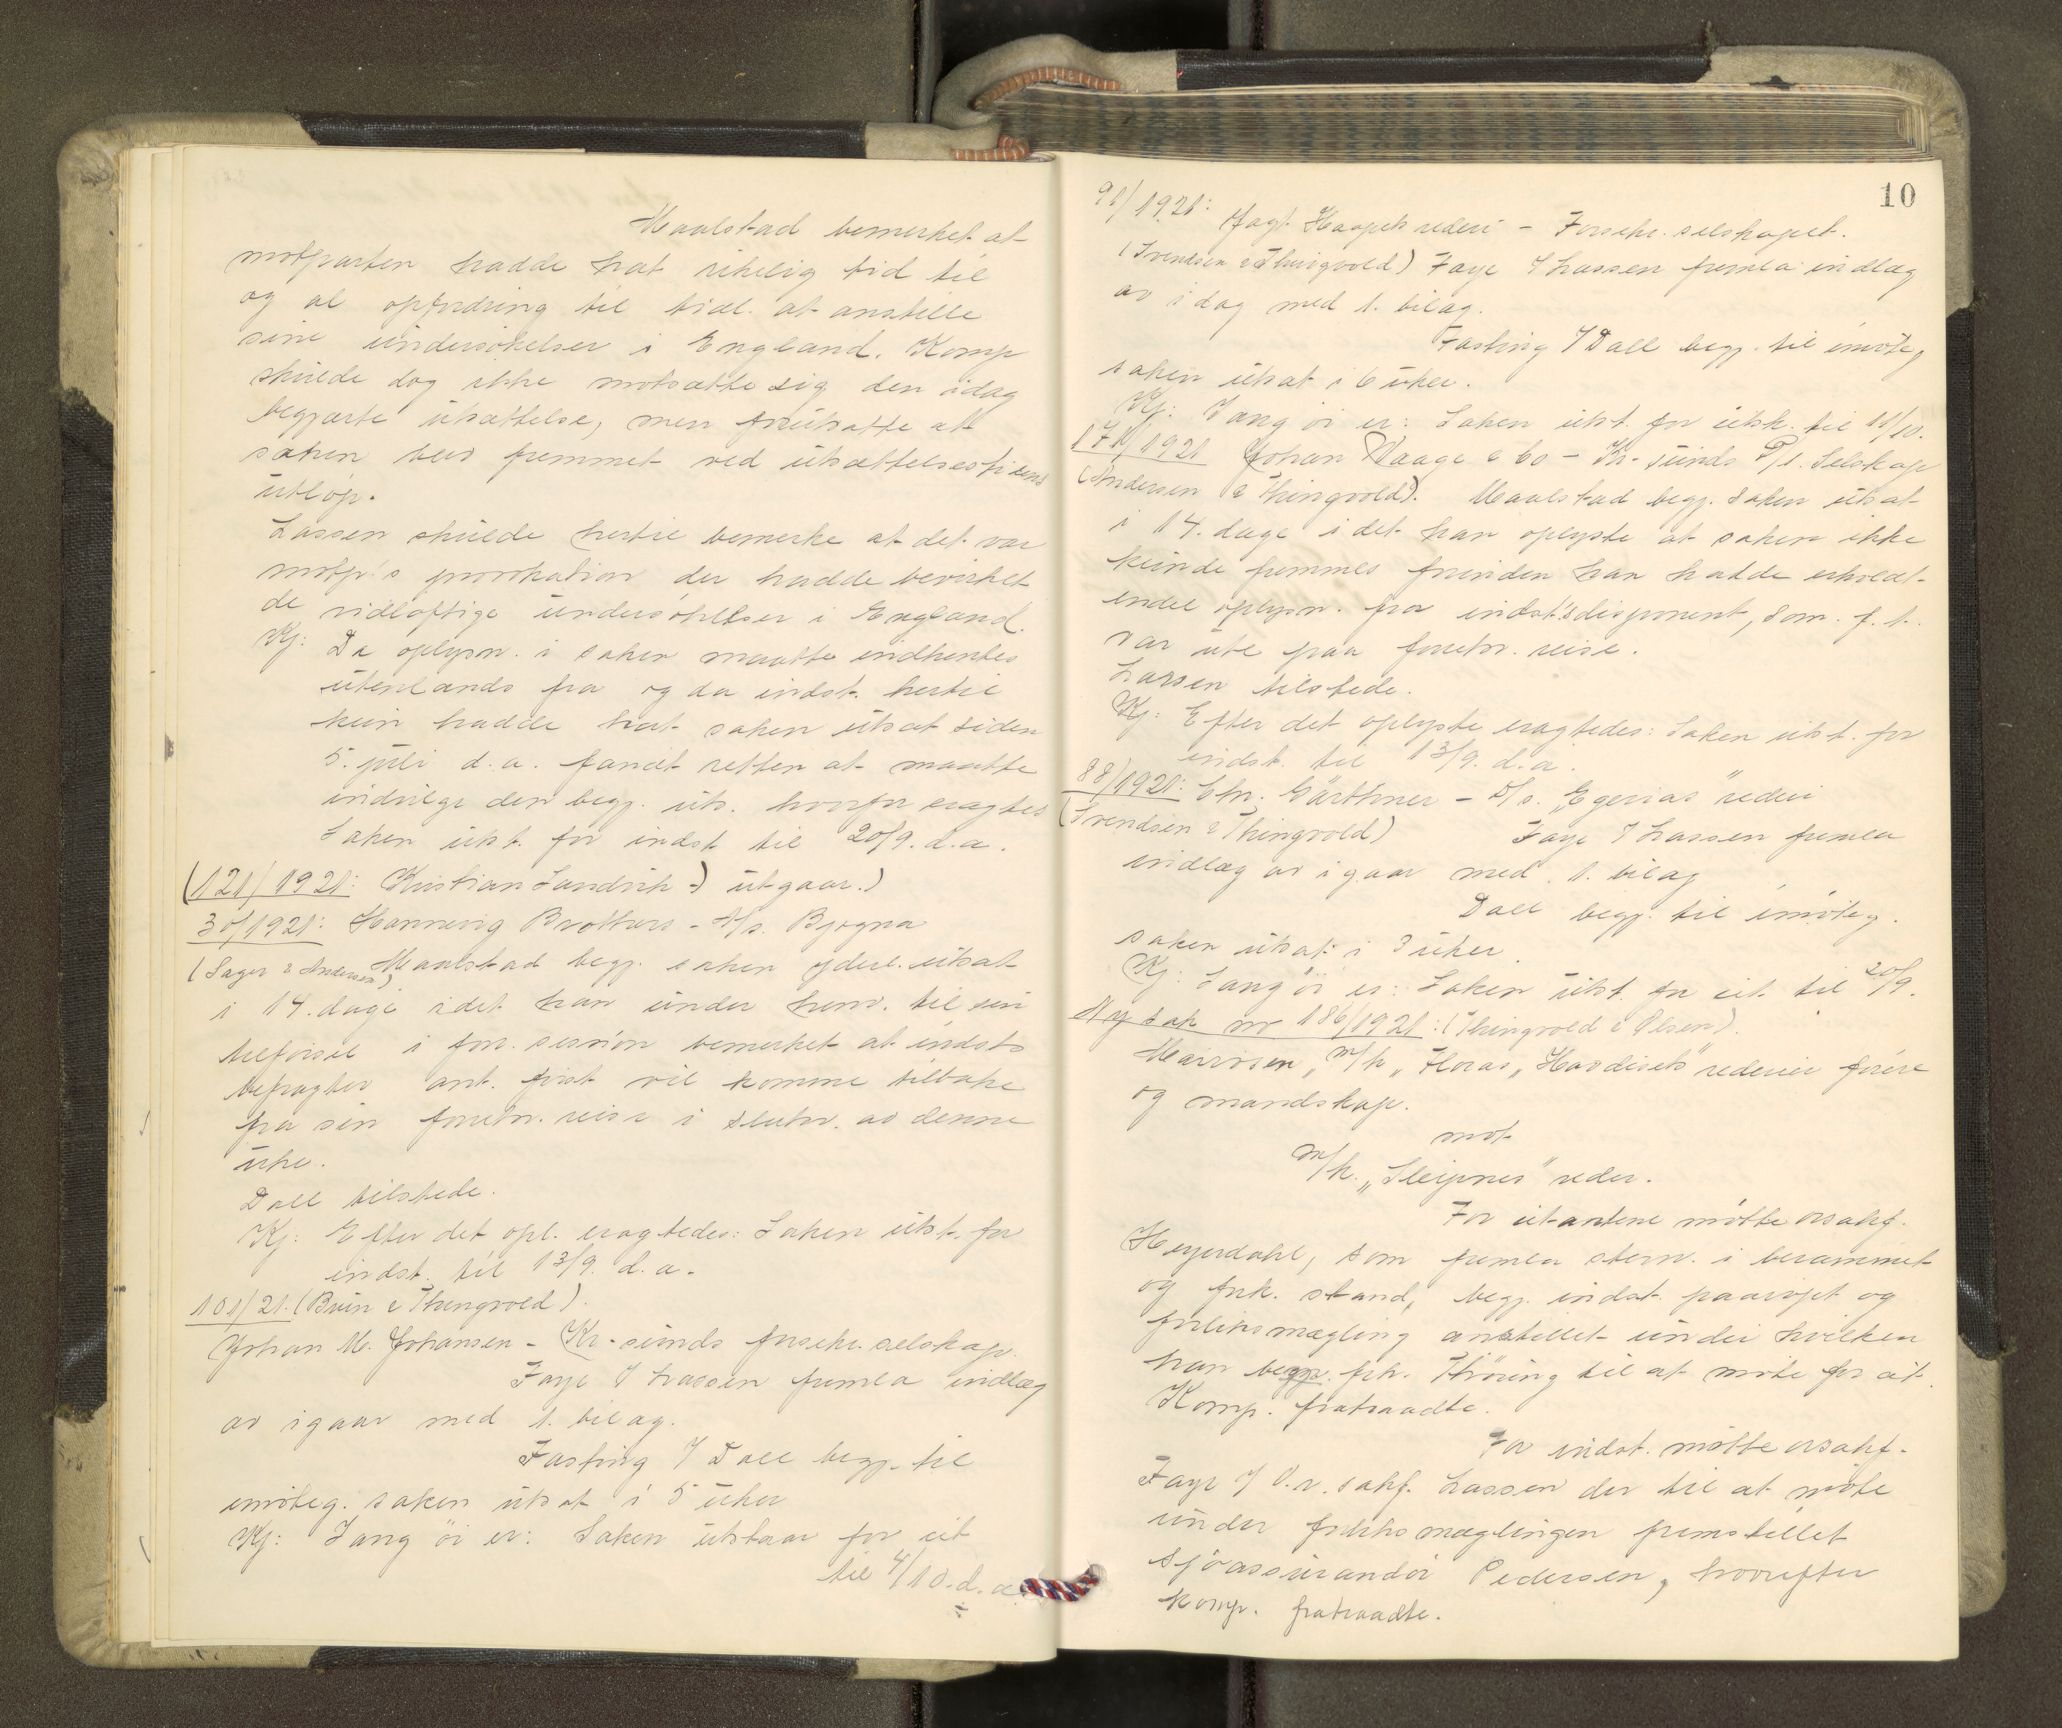 Maalstad bemerket at
motparten hadde hat rikelig tid til
og al opfordring til tidl. at anstille
sine undersøkelser i England. Komp
skulde dog ikke motsætte sig den idag
begjærte utsættelse, men forutsatte at
saken blev fremmet ved utsættelsesfristens
utløp.
Lassen skulde hertil bemerke at det var
motp's provokation der hadde bevirket
de vidløftige undersøkelser i England.
Kj: Da oplysn. i saken maatte indhentes
utenlands fra og da indst. hertil
kun hadde hat saken utsat siden
5. juli d.a. fandt retten at maatte
indvilge den begj. uts. hvorfor eragtes
Saken utst. for indst til 20/9. d.a.
(121/1921: Kristian Sandvik -) utgaar.)
30/1921: Hannevig Brothers - A/s. Bjogna
(Sager & Andersen) Maalstad begj. saken yderl. utsat
i 14. dage idet han under henv. til sin
tilførsel i for. session bemerket at indsts
befragter ant. først vil komme tilbake
fra sin forretn. reise i slutn. av denne
uke.
Dall tilstede.
Kj: Efter det opl. eragtedes: Saken utst. for
indst. til 13/9. d.a.
101/21. (Bruun & Thingvold).
Johan M. Johansen - Kr-sunds forsikr. selskap.
Faye / Lassen fremla indlæg
av igaar med 1. bilag.
Fasting / Dall begj. til
imøteg. saken utsat i 5 uker
Kj: Gang øi er: Saken utstaar for cit
til 4/10. d.a.
10
91/1921: Jagt. Haapets rederi - Forsikr. selskapet.
(Svendsen & Thingvold) Faye / Lassen fremla indlæg
av idag med 1. bilag.
Fasting / Dall begj. til imøteg
saken utsat i 6 uker.
Kj: Gang øi er: Saken utst. for utsk. til 11/10.
171/1921 Johan Vaage & Co - Kr-sunds D/s. Selskap
(Andersen & Thingvold). Maalstad begj. saken utsat
i 14. dage i det han oplyste at saken ikke
kunde fremmes forinden han hadde erholdt
endel oplysn. fra indst'sdisponent, som. f. t.
var ute paa forretn. reise.
Larsen tilstede.
Kj: Efter det oplyste eragtedes: Saken utst. for
indst. til 13/9. d.a.
88/1921: Chr. Gärthner - D/s. "Egerias" rederi
(Svendsen & Thingvold) Faye / Lassen fremla
indlæg av igaar med 1. bilag
Dall begj. til imøteg.
saken utsat i 3 uker.
Kj: Gang øi er: Saken utst. for cit. til 20/9.
Ny sak nr 186/1921: (Thingvold & Olsen).
m/k "Floras, "Havdisets" rederier førere
og mandskap.
mot
m/k. "Sleipnes" reder.
For citantene møtte orsakf.
Heyerdahl, som fremla stevn. i berammet
og fork. stand, begj. indst. paaropt og
forliksmægling anstillet under hvilken
han begj. frk. Thoring til at møte for cit.
Komp. fratraadte.
For indst. møtte orsakf.
Faye / O.r. sakf. Lassen der til at møte
under forliksmæglingen fremstillet
sjøassurandør Pedersen, hvorefter
komp. fratraadte.